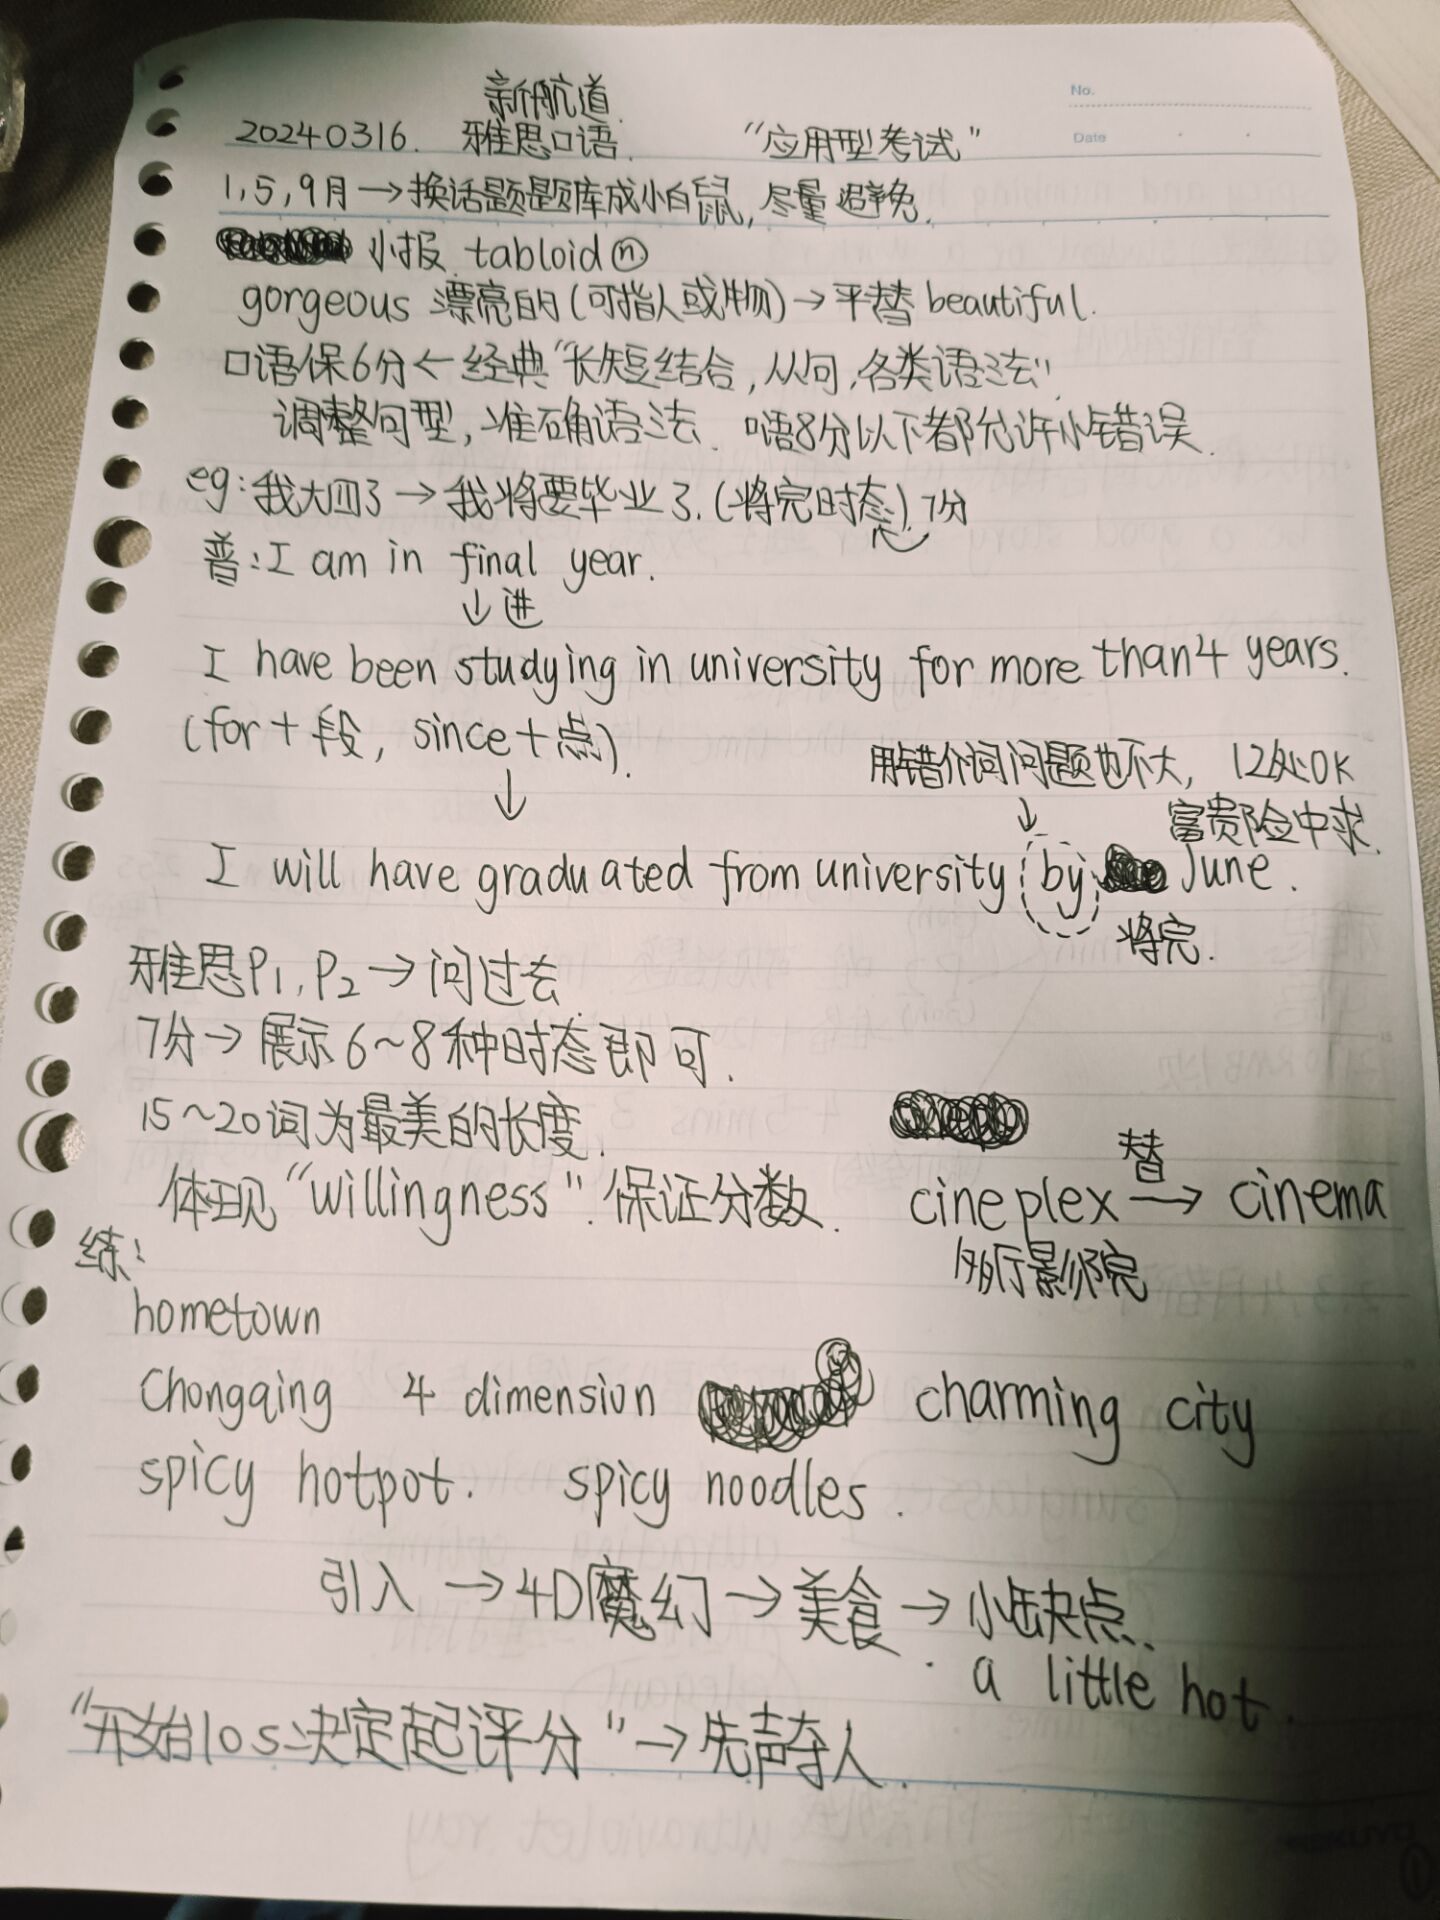 新航道
No.
20240316. 雅思口语. "应用型考试"
Date
1,5,9月→换话题题库成小白鼠,尽量避免.
小报 tabloid ⓝ
gorgeous 漂亮的(可指人或物)→平替 beautiful.
口语保6分←经典"长短结合,从句,各类语法"
调整句型,准确语法. 口语8分以下都允许小错误.
eg:我大四了→我将要毕业了.(将完时态).7分
普:I am in final year.
↓进
I have been studying in university for more than 4 years.
(for+段, since+点).
↓
用错介词问题也不大, 1 2处OK
↓ 富贵险中求.
I will have graduated from university by June.
将完.
雅思P1,P2→问过去
7分→展示6~8种时态即可.
15~20词为最美的长度.
体现"willingness".保证分数. cineplex 替→ cinema
多厅影院
练:
hometown
Chongqing 4 dimension charming city
spicy hotpot. spicy noodles.
引入→4D魔幻→美食→小缺点.
a little hot.
"开始10s决定起评分"→先声夺人.
KOKUYO
①